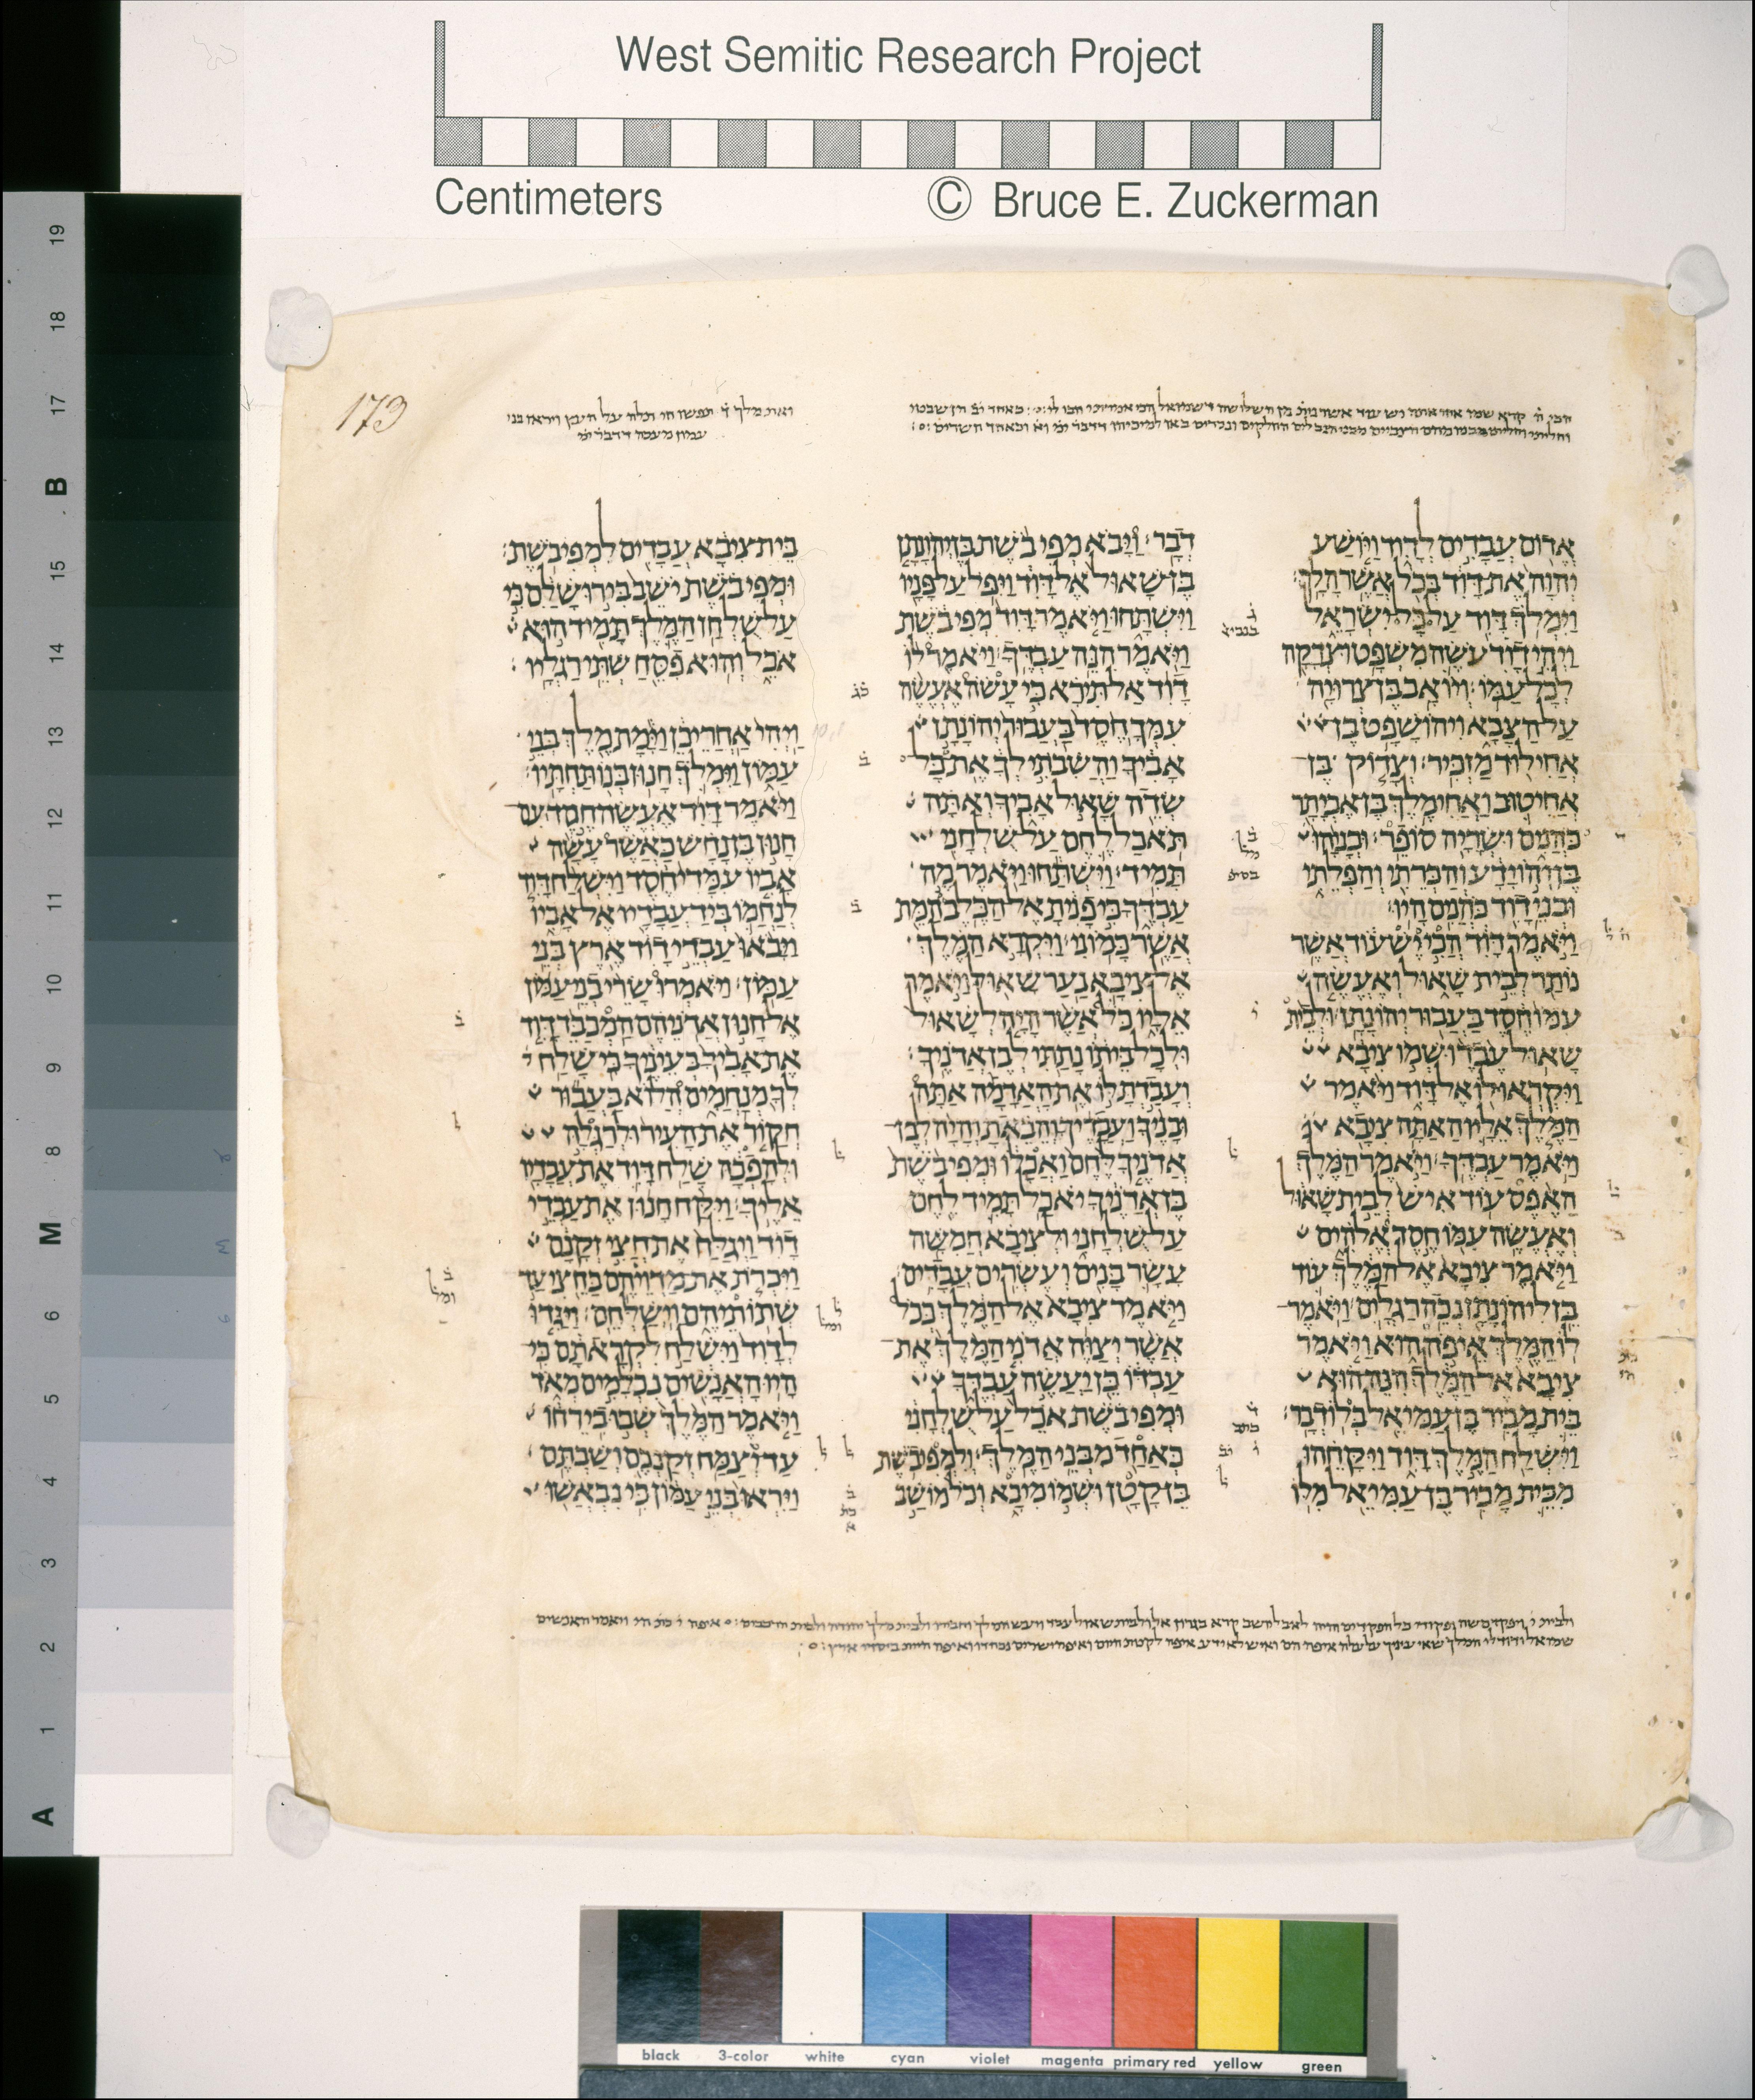 West Semitic Research Project
Centimeters © Bruce E. Zuckerman
173
אדום עבדים לדוד ויושע
יהוה את דוד בכל אשר הלך׃
וימלך דוד על כל ישראל
ויהי דוד עשה משפט וצדקה
לכל עמו׃ ויואב בן צרויה
על הצבא ויהושפט בן
אחילוד מזכיר׃ וצדוק בן
אחיטוב ואחימלך בן אביתר
כהנים ושריה סופר׃ ובניהו
בן יהוידע והכרתי והפלתי
ובני דוד כהנים היו׃
ויאמר דוד הכי יש עוד אשר
נותר לבית שאול ואעשה
עמו חסד בעבור יהונתן׃ ולבית
שאול עבד ושמו ציבא
ויקראו לו אל דוד ויאמר
המלך אליו האתה ציבא
ויאמר עבדך׃ ויאמר המלך
האפס עוד איש לבית שאול
ואעשה עמו חסד אלהים
ויאמר ציבא אל המלך עוד
בן ליהונתן נכה רגלים׃ ויאמר
לו המלך איפה הוא ויאמר
ציבא אל המלך הנה הוא
בית מכיר בן עמיאל בלו דבר׃
וישלח המלך דוד ויקחהו
מבית מכיר בן עמיאל מלו
דבר׃ ויבא מפיבשת בן יהונתן
בן שאול אל דוד ויפל על פניו
וישתחו ויאמר דוד מפיבשת
ויאמר הנה עבדך׃ ויאמר לו
דוד אל תירא כי עשה אעשה
עמך חסד בעבור יהונתן
אביך והשבתי לך את כל
שדה שאול אביך ואתה
תאכל לחם על שלחני
תמיד׃ וישתחו ויאמר מה
עבדך כי פנית אל הכלב המת
אשר כמוני׃ ויקרא המלך
אל ציבא נער שאול ויאמר
אליו כל אשר היה לשאול
ולכל ביתו נתתי לבן אדניך׃
ועבדת לו את האדמה אתה
ובניך ועבדיך והבאת והיה לבן
אדניך לחם ואכלו ומפיבשת
בן אדניך יאכל תמיד לחם
על שלחני ולציבא חמשה
עשר בנים ועשרים עבדים׃
ויאמר ציבא אל המלך ככל
אשר יצוה אדני המלך את
עבדו כן יעשה עבדך
ומפיבשת אכל על שלחני
כאחד מבני המלך׃ ולמפיבשת
בן קטן ושמו מיכא וכל מושב
בית ציבא עבדים למפיבשת׃
ומפיבשת ישב בירושלם כי
על שלחן המלך תמיד הוא
אכל והוא פסח שתי רגליו׃
ויהי אחרי כן וימת מלך בני
עמון וימלך חנון בנו תחתיו׃
ויאמר דוד אעשה חסד עם
חנון בן נחש כאשר עשה
אביו עמדי חסד וישלח דוד
לנחמו ביד עבדיו אל אביו
ויבאו עבדי דוד ארץ בני
עמון׃ ויאמרו שרי בני עמון
אל חנון אדניהם המכבד דוד
את אביך בעיניך כי שלח
לך מנחמים הלוא בעבור
חקור את העיר ולרגלה
ולהפכה שלח דוד את עבדיו
אליך׃ ויקח חנון את עבדי
דוד ויגלח את חצי זקנם
ויכרת את מדויהם בחצי עד
שתותיהם וישלחם׃ ויגדו
לדוד וישלח לקראתם כי
היו האנשים נכלמים מאד
ויאמר המלך שבו בירחו
עד יצמח זקנכם ושבתם׃
ויראו בני עמון כי נבאשו
19
18
17
B
15
14
13
12
11
10
9
8
M
6
5
4
3
2
1
A
black 3-color white cyan violet magenta primary red yellow green